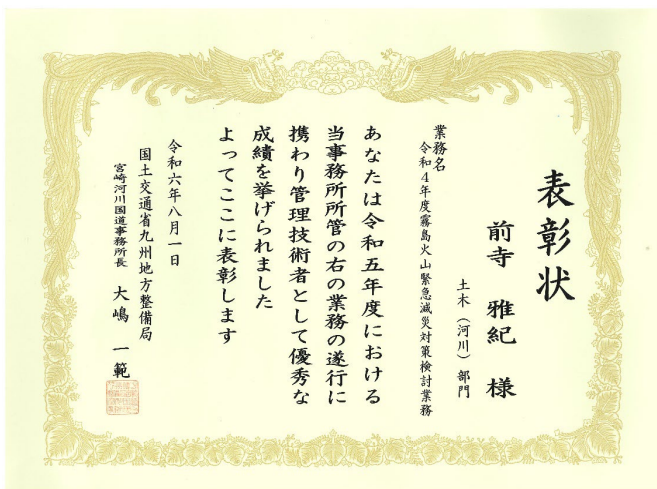 表彰状
土木（河川）部門
前寺 雅紀 様
業務名
令和４年度霧島火山緊急減災対策検討業務
あなたは令和五年度における
当事務所所管の右の業務の遂行に
携わり管理技術者として優秀な
成績を挙げられました
よってここに表彰します
令和六年八月一日
国土交通省九州地方整備局
宮崎河川国道事務所長 大嶋 一範